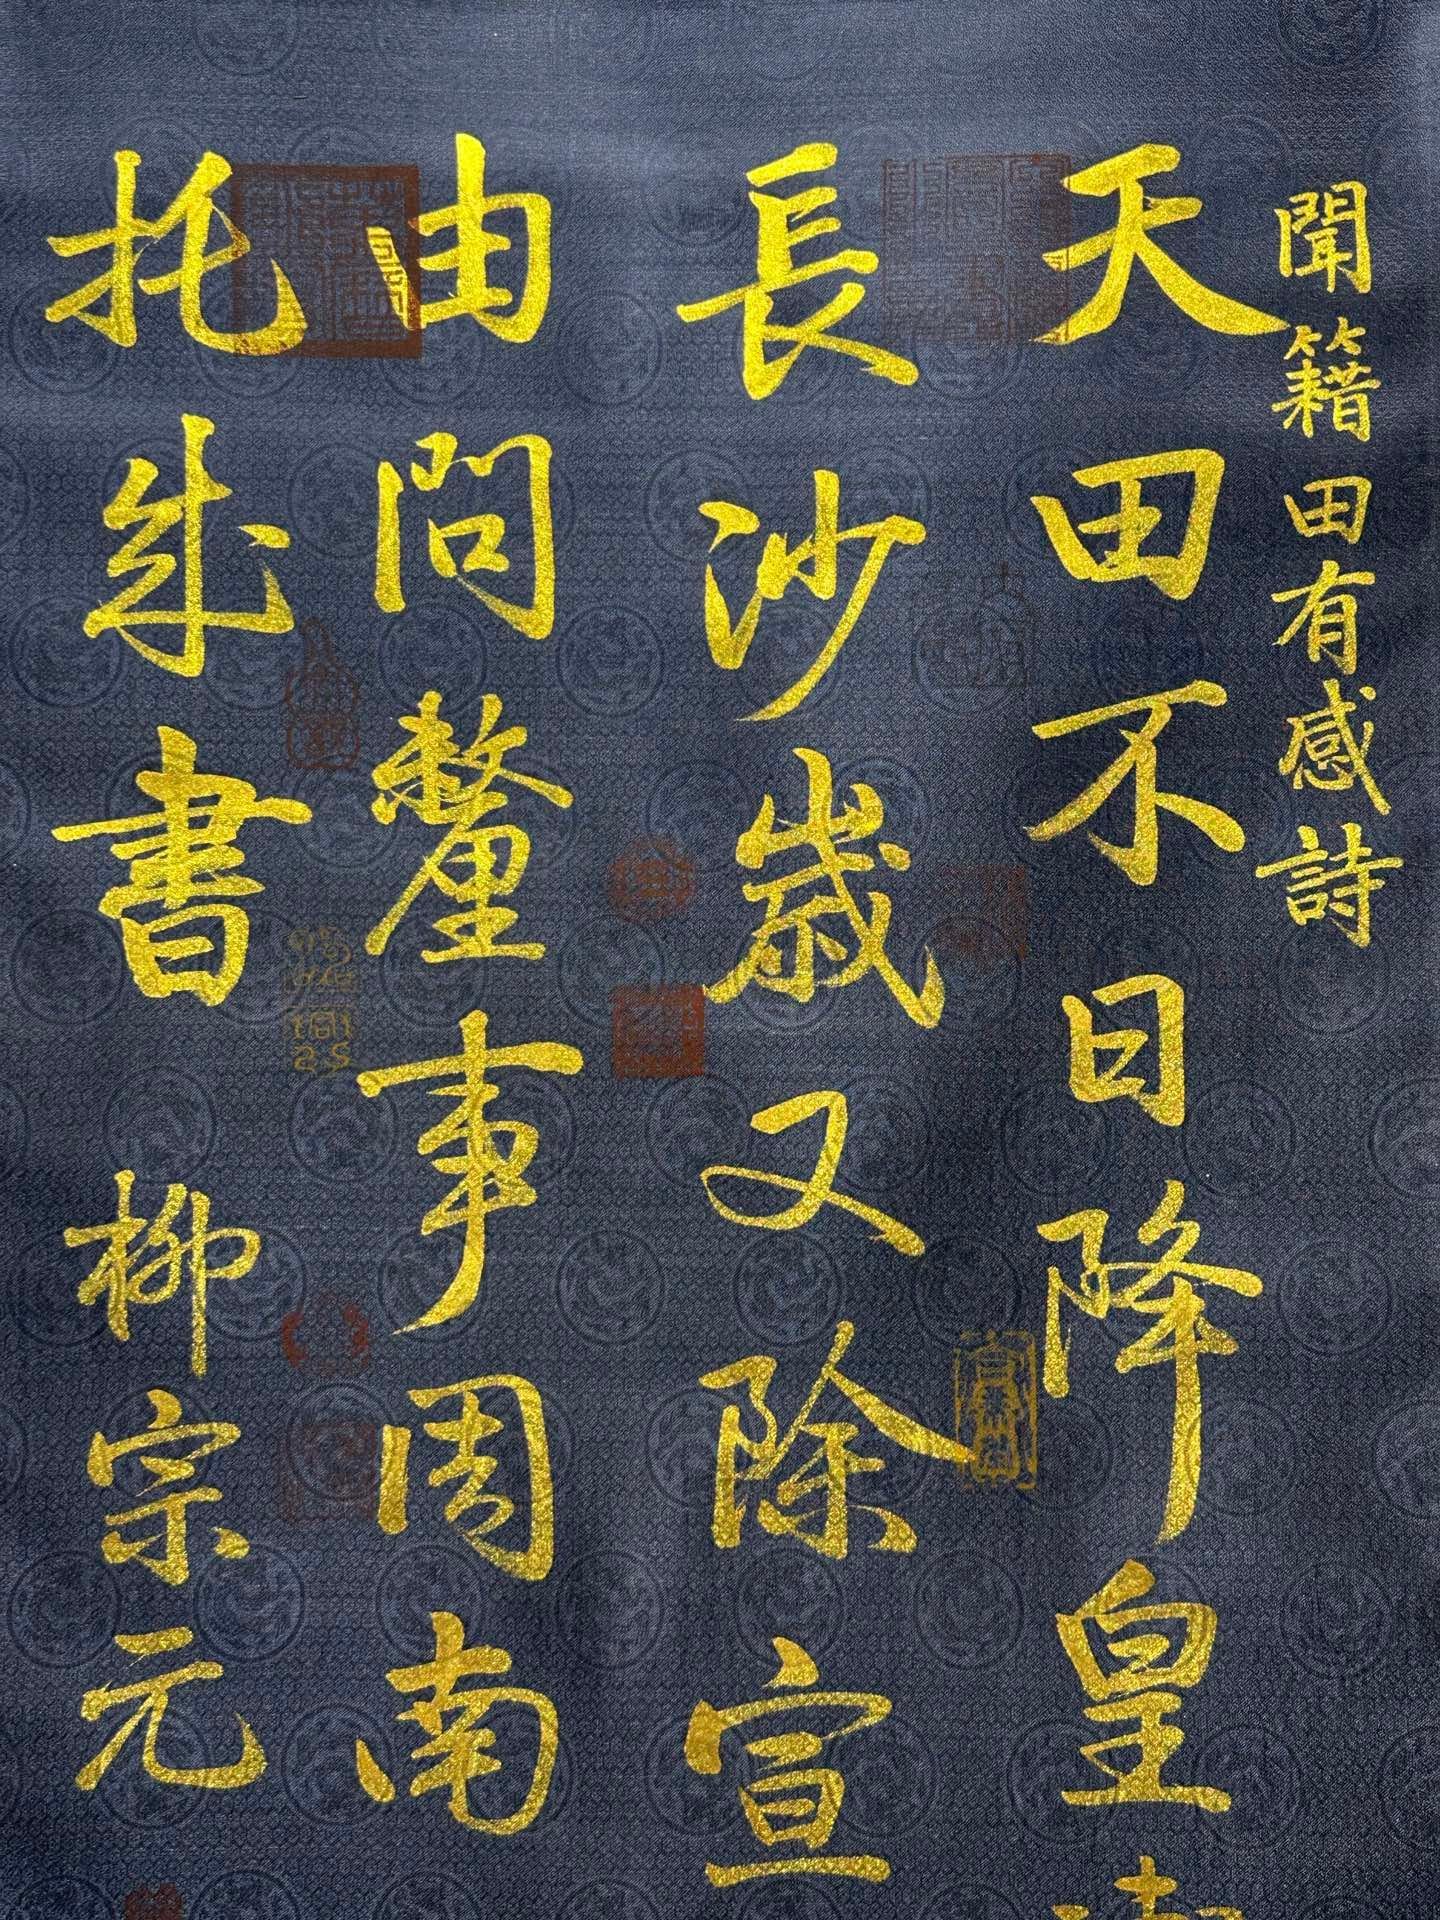 聞籍田有感詩
天田不日降皇
長沙歲又除宣
由問釐事周南
托成書 柳宗元